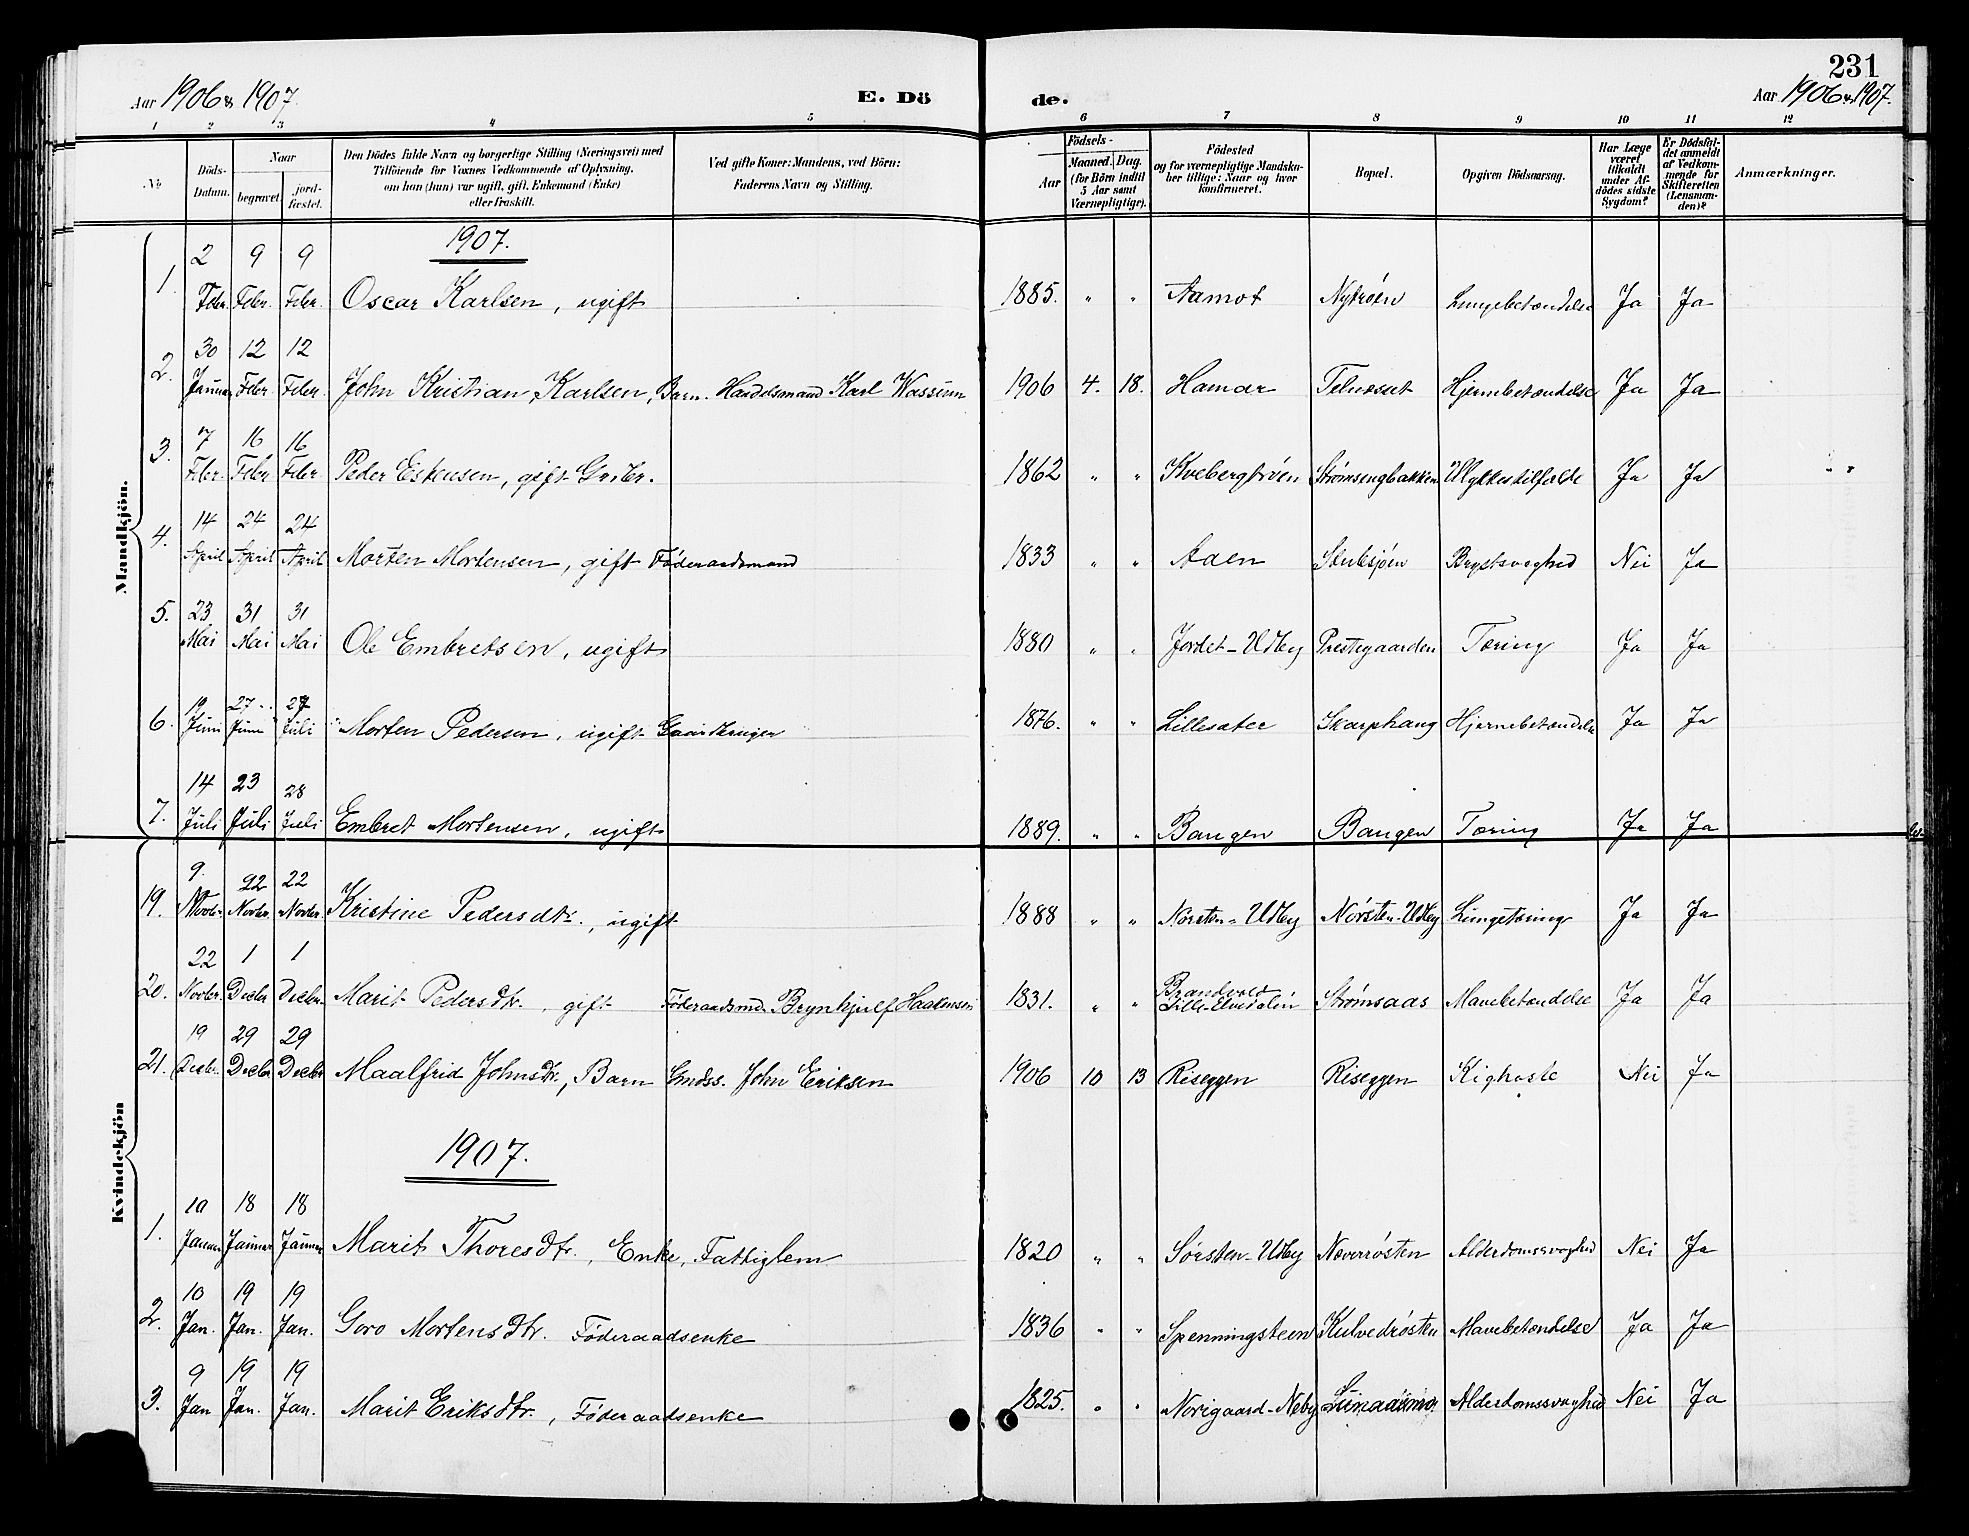 231
Aar 1906 & 1907.
E. Dö
de.
Aar 1906 & 1907.
1 2 3 4 5 6 7 8 9 10 11 12
No
Döds-Datum.
Naar
begravet.
jord-fæstet.
Den Dödes fulde Navn og borgerlige Stilling (Næringsvei) med
Tilföiende for Voxnes Vedkommende af Oplysning,
om han (hun) var ugift, gift, Enkemand (Enke)
eller fraskilt.
Ved gifte Koner: Mandens, ved Börn:
Faderens Navn og Stilling.
Födsels-
Aar
Maaned. Dag.
(for Börn indtil
5 Aar samt
Værnepligtige).
Födested
og for værnepligtige Mandska-
ber tillige: Naar og hvor
konfirmeret.
Bopæl.
Opgiven Dödsaarsag.
Har Læge
været
tilkaldt
under Af-
dödes sidste
Sygdom?
Er Dödsfal-
det anmeldt
af Vedkom-
mende for
Skifteretten
(Lensman-
den)?
Anmærkninger.
Mandkjön.
1907.
1. 2 Febr. 9 Febr. 9 Febr. Oscar Karlsen, ugift 1885. " " Aamot Nytrøen Lungebetændelse Ja Ja
2. 30 Januar 12 Febr. 12 Febr. John Kristian Karlsen, Barn. Handelsmand Karl Wassum 1906 4. 18. Hamar Telnesset Hjernebetændelse Ja Ja
3. 7 Febr. 16 Febr 16 Febr Peder Estensen, gift Grdbr. 1862 " " Kvebergtrøen Strømsengbakken Ulykkestilfælde Ja Ja
4. 14 April 24 April 24 April Morten Mortensen, gift Føderaadsmand 1833 " " Aaen Stubsjøen Brystsvaghed Nei Ja
5. 23 Mai 31 Mai 31 Mai Ole Embretsen, ugift 1880 " " Jordet-Udby Prestegaarden Tæring Ja Ja
6. 19 Juni 27 Juni 27 Juli Morten Pedersen, ugift 1876. " " Lillesæter Skarphaug Hjernebetændelse Ja Ja
7. 14 Juli 23 Juli 28 Juli Embret Mortensen, ugift 1889. " " Bangen Bangen Tæring Ja Ja
Kvindekjön
19. 9. Novbr. 22 Novbr. 22 Novbr. Kristine Pedersdtr., ugift 1888 " " Nørsten-Udby Nørsten-Udby Lungetæring Ja Ja
20. 22 Novbr. 1 Decbr 1 Decbr. Marit Pedersdtr., gift Føderaadsmd. Brynhjulf Haakensen 1831. " " Brandvold Lille-Elvedalen Strømsaas Mavebetændelse Ja Ja
21. 19 Decbr. 29 Decbr 29 Decbr Maalfrid Johnsdtr., Barn Gmdss. John Eriksen 1906 10 13 Riseggen Riseggen Kighoste Nei Ja
1907.
1. 10 Januar 18 Januar 18 Januar Marit Thoresdtr., Enke, Fattiglem 1820 " " Sørsten-Udby Neverrøsten Alderdomssvaghed Nei Ja
2. 10 Jan. 19 Jan. 19 Jan. Goro Mortensdtr. Føderaadsenke 1836 " " Spenningsteen Kulvedrøsten Mavebetændelse Ja Ja
3. 9 Jan 19 Jan. 19 Jan. Marit Eriksdtr., Føderaadsenke 1825. " " Norigaard-Neby Lunaasmo. Alderdomssvaghed Nei Ja